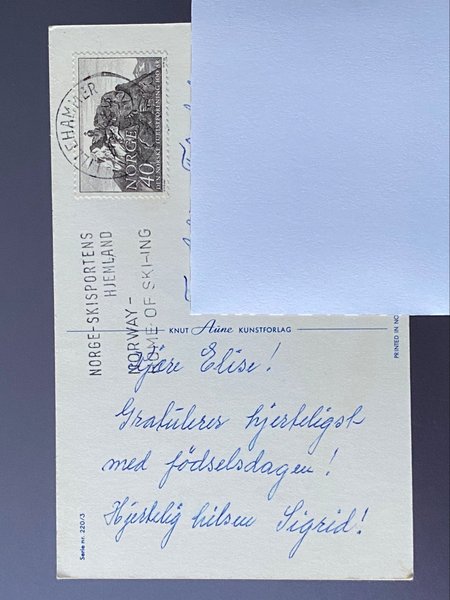 LILLEHAMMER
NORGE 40
DEN NORSKE TURISTFORENING 100 ÅR
NORGE-SKISPORTENS
HJEMLAND
NORWAY-
HOME OF SKI-ING
KNUT Aûne KUNSTFORLAG
PRINTED IN NO
Kjære Elise!
Gratulerer hjerteligst
med födselsdagen!
Hjertelig hilsen Sigrid!
Serie nr. 220/3